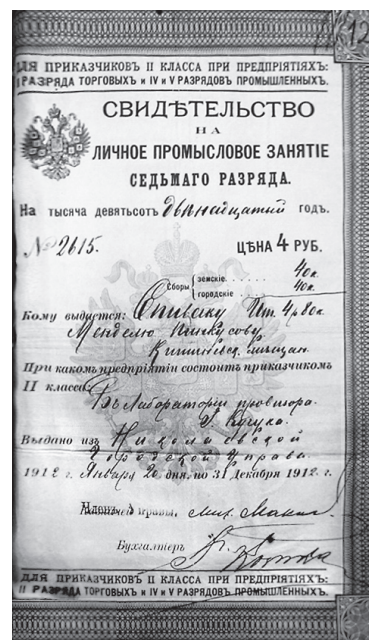 ДЛЯ ПРИКАЗЧИКОВЪ II КЛАССА ПРИ ПРЕДПРІЯТІЯХЪ:
II РАЗРЯДА ТОРГОВЫХЪ И IV И V РАЗРЯДОВЪ ПРОМЫШЛЕННЫХЪ.
СВИДѢТЕЛЬСТВО
НА
ЛИЧНОЕ ПРОМЫСЛОВОЕ ЗАНЯТІЕ
СЕДЬМАГО РАЗРЯДА.
На тысяча девятьсотъ двѣнадцатый годъ.
№ 2615. ЦѢНА 4 РУБ.
Сборы земскіе 40к
городскіе 40к
Кому выдается: Спиваку Ит. 4р 80к
Менделю Пинкусову
Кишиневск. мѣщан.
При какомъ предпріятіи состоитъ приказчикомъ
II класса: Въ Лабораторіи провизора
Выдано изъ Николаевской
Городской Управы
1912 г. Январь 20 дня, по 31 Декабря 1912 г.
Членъ Управы,
Бухгалтеръ
ДЛЯ ПРИКАЗЧИКОВЪ II КЛАССА ПРИ ПРЕДПРІЯТІЯХЪ:
II РАЗРЯДА ТОРГОВЫХЪ И IV И V РАЗРЯДОВЪ ПРОМЫШЛЕННЫХЪ.